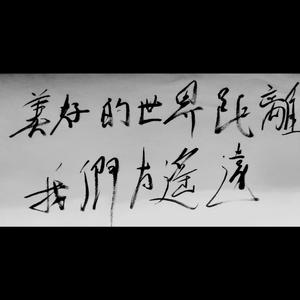 美好的世界距離
我們有遙遠